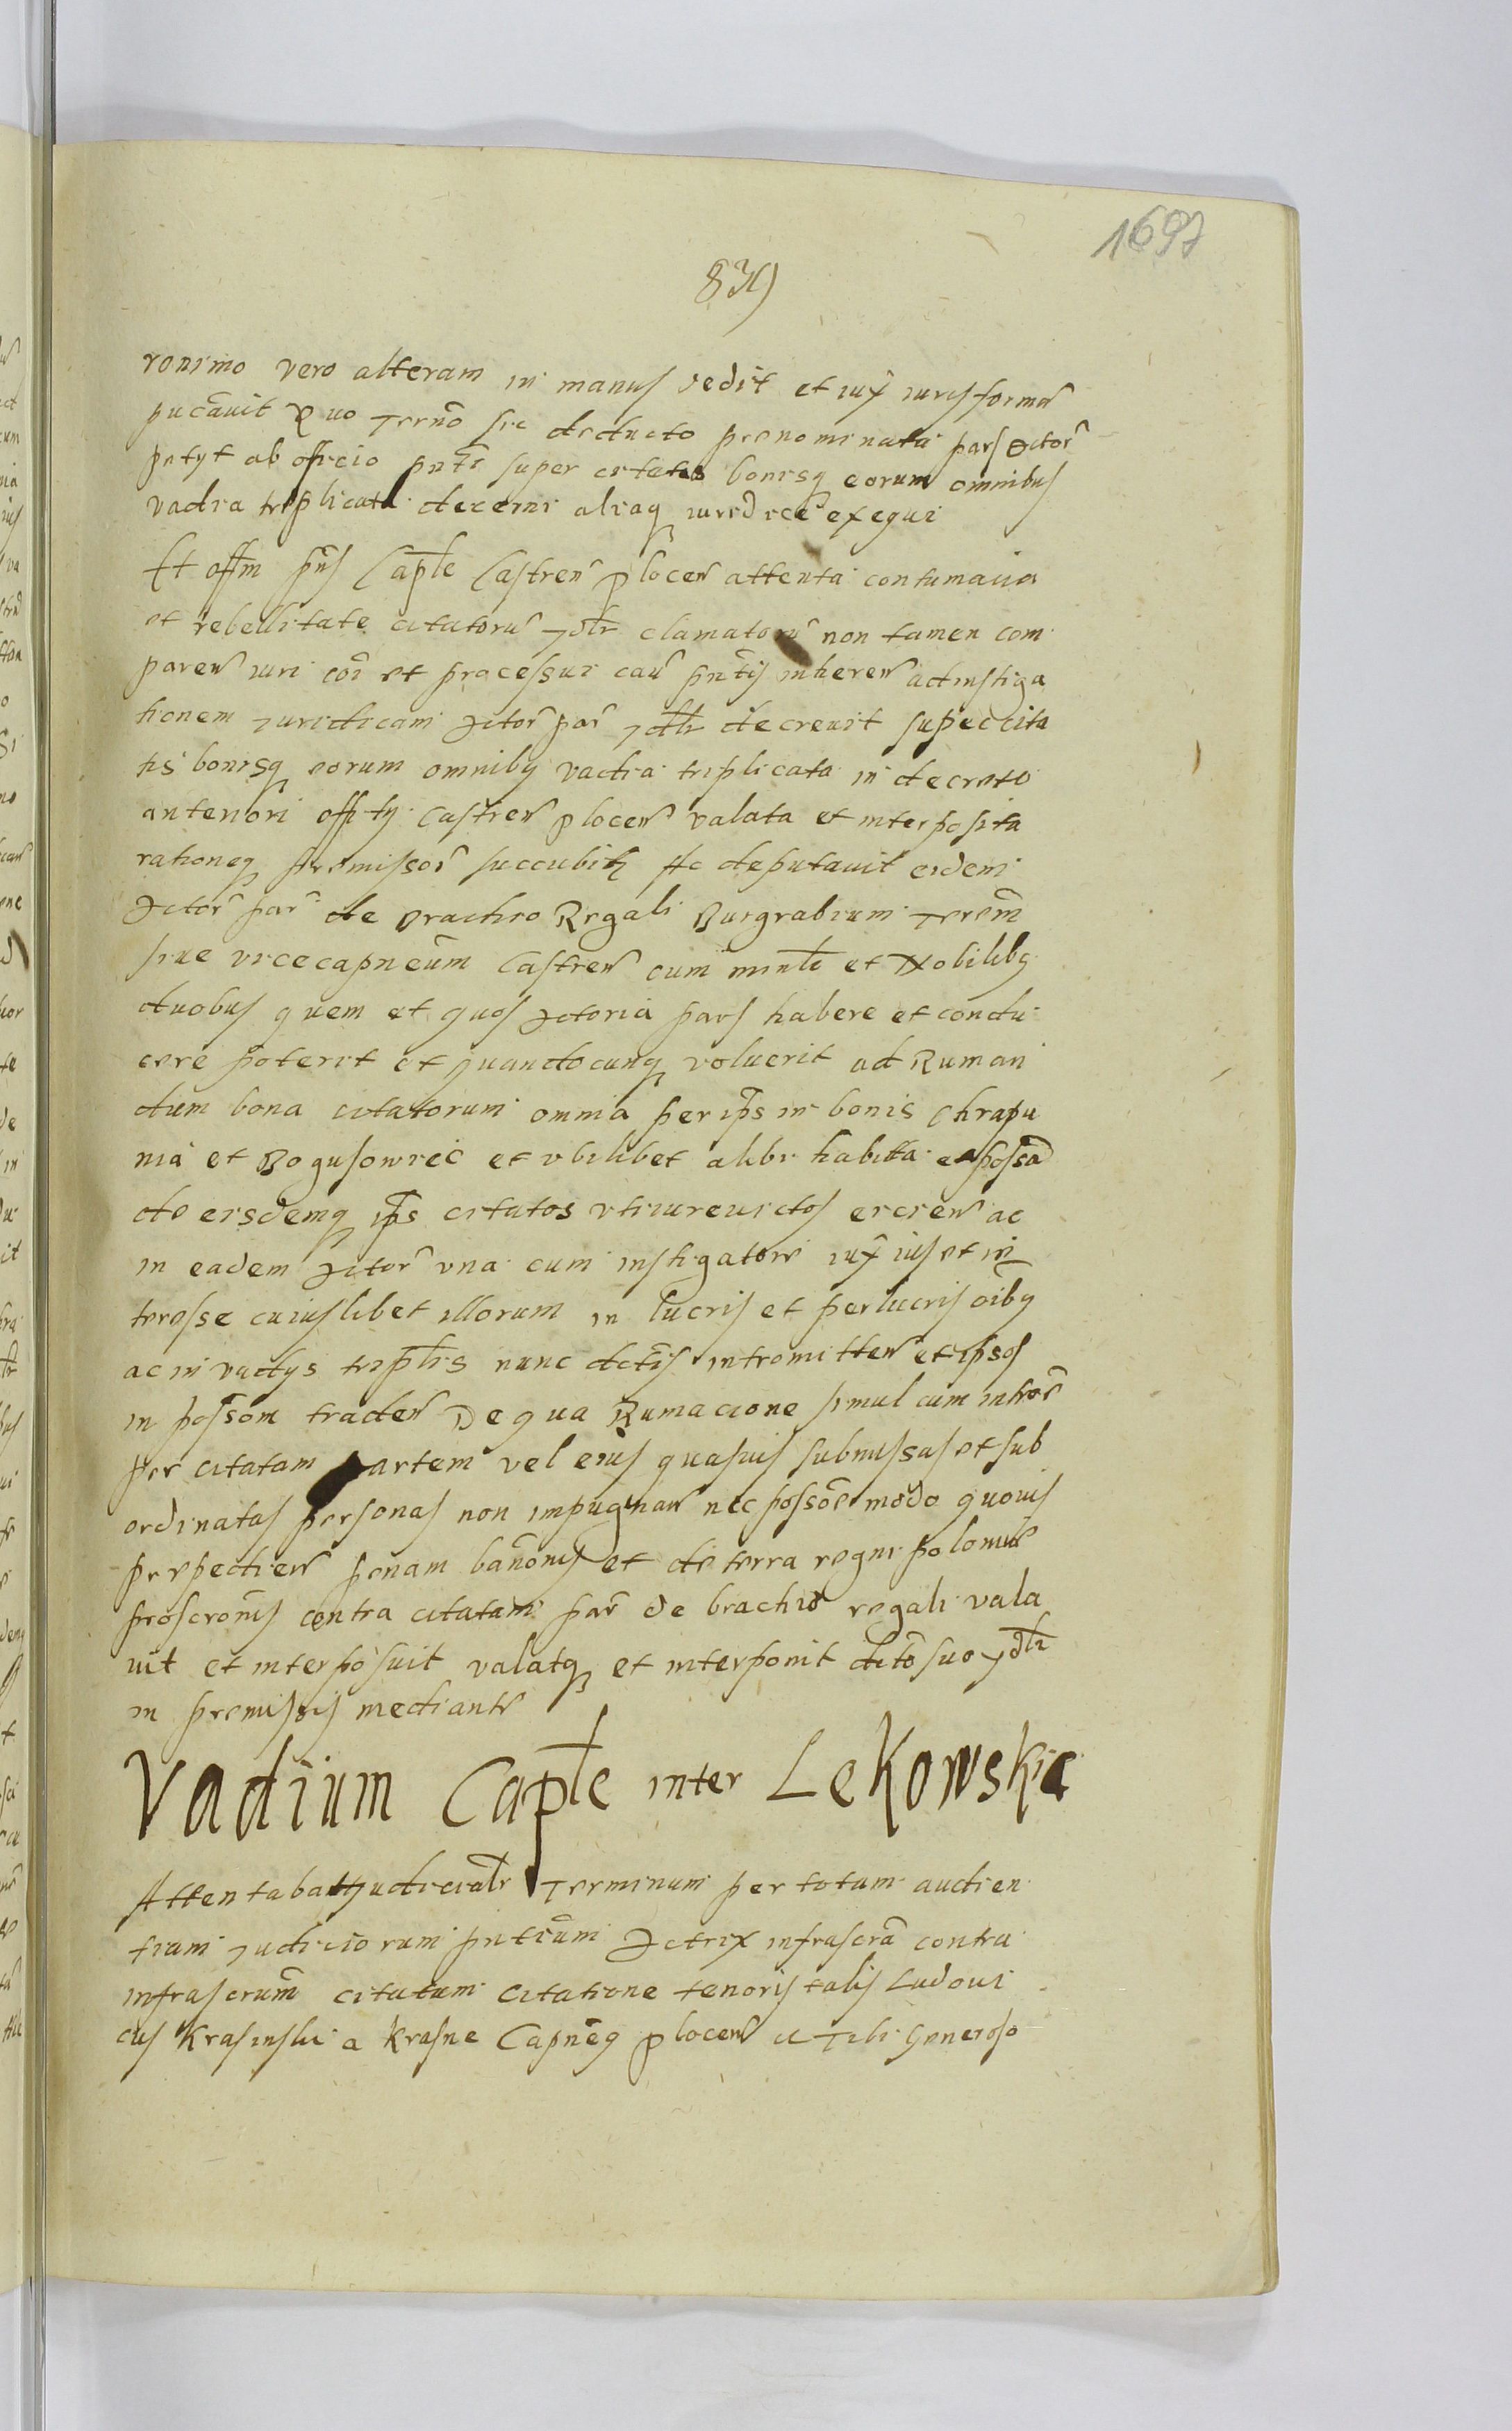 1697
839
ronimo vero alteram in manus dedit et iux̃ iuris formã
pucãuit Quo Termõ sic deducto prenominata pars Actor̃
petyt ab officio pñti super citatis bonisq eorum omnibus
vadia triplicata decerni aliaq iuridice exequi
Et offm pñs Caple Castreñ ploceñ attenta contumacia
et rebellitate citatorũ Jdlr clamatorũ non tamen com
pareñ iuri coĩ et processui caũ pñtis inhereñ ad instiga
tionem Juridicam Actor̃ par̃ Jdlr decreuit super cita
tis bonisq eorum omnibq vadia triplicata in decreto
anteriori officij Castreñ ploceñ valata et interposita
rationeq premissor̃ succubit Ac deputauit eidem
Actor̃ par̃ de Brachio Regali Burgrabium Terrem̃
siue vicecapneũm Castreñ cum minli et Nobilibq
duobus quem et quos Actoria pars habere et condu
cere poterit et quandocunq voluerit ad Ruman
dum bona citatorum omnia per ip̃s in bonis Chrapu
nia et Bogusowiec et vbilibet alibi habita et poss̃a
de eisdemq ip̃s citatos vti iure uictos eicieñ ac
in eadem Actor̃ vna cum instigatore iux̃ ius et in
teresse cuiuslibet illorum in lucris et perlucris oĩbq
ac in vadys triplĩs nunc dctĩs intromitteñ et ipsos
in possõm tradeñ De qua Rumacione simul cum introẽ
per citatam partem vel eius quasuis submissas et sub
ordinatas personas non impugnañ nec possõe modo quouis
prepedieñ penam bañonis et de terra regni polonie
proscroñis contra citatam par̃ de brachio regali vala
uit et interposuit valatq et interponit dcto suo Jdli
in premissis mediante
Vadium Caple inter Lekowskic
Attentabat Judicialr Terminum per totam audien
tiam Judiciorum pñtium Actrix infrascrã contra
infrascrum̃ citatum citatione tenoris talis Ludoui
cus Krasinski a Krasne Capneq ploceñ Tibi Generoso